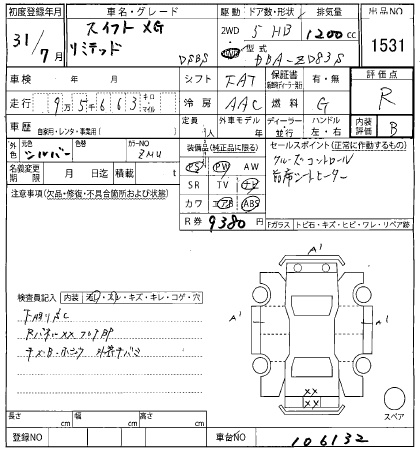 初度登録年月
車名・グレード
駆動
ドア数・形状
排気量
出品NO
31/7月
スイフト XG
リミテッド
DSBS
2WD
5 HB
1200cc
型式
DBA-ZD83S
1531
車検
年 月
シフト
FAT
保証書
有・無
評価点
R
走行
9万5千663
キロ・マイル
冷房
AAC
燃料
G
車歴
自家用・レンタ・事業用( )
定員
人
外車モデル
年
ディーラー
並行
ハンドル
左・右
内装評価
B
外色
元色
シルバー
色替
カラーNO
ZMU
装備品(純正品に限る)
PS PW AW
SR TV ナビ
カワ エアB ABS
セールスポイント(正常に作動するもの)
クルーズコントロール
前席シートヒーター
名義変更期限
月 日迄
積載
t
注意事項(欠品・修復・不具合箇所および状態)
R券
9380
円
Fガラス
トビ石・キズ・ヒビ・ワレ・リペア跡
検査員記入
内装
ヨゴレ・スレ・キズ・キレ・コゲ・穴
A'
A'
A'
XX
XX
スペア
長さ
cm
幅
cm
高さ
cm
登録NO
車台NO
106132